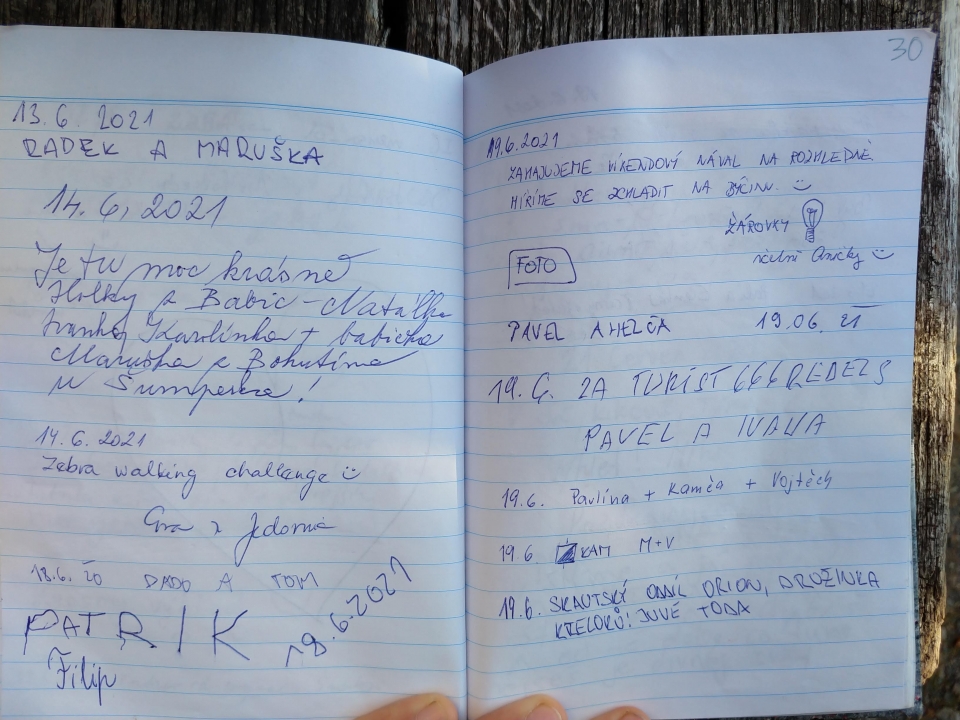 13.6. 2021
RADEK A MARUŠKA
14.6, 2021
Je tu moc krásně
Holky z Babic - Natálka
Ivanka, Karolínka + babička
Maruška z Bohutína
u Šumperka!
14. 6. 2021
Zebra walking challenge
z Jedomě
18.6. DADO A TOM
PATRIK
19.6.2021
Filip
30
19.6.2021
ZAHAJUJEME VÍKENDOVÝ NÁVAL NA ROZHLEDNĚ
MÍŘÍME SE ZCHLADIT NA BYČINU.
ŽÁROVKY
Aničky
FOTO
PAVEL A HELČA 19.06. 21
19. 6. ZA TURIST
PAVEL A IVANA
19.6. Pavlína + Kamča + Vojtěch
19.6. KAM M+V
19.6. SKAUTSKÝ ODDÍL ORION, DRUŽINKA